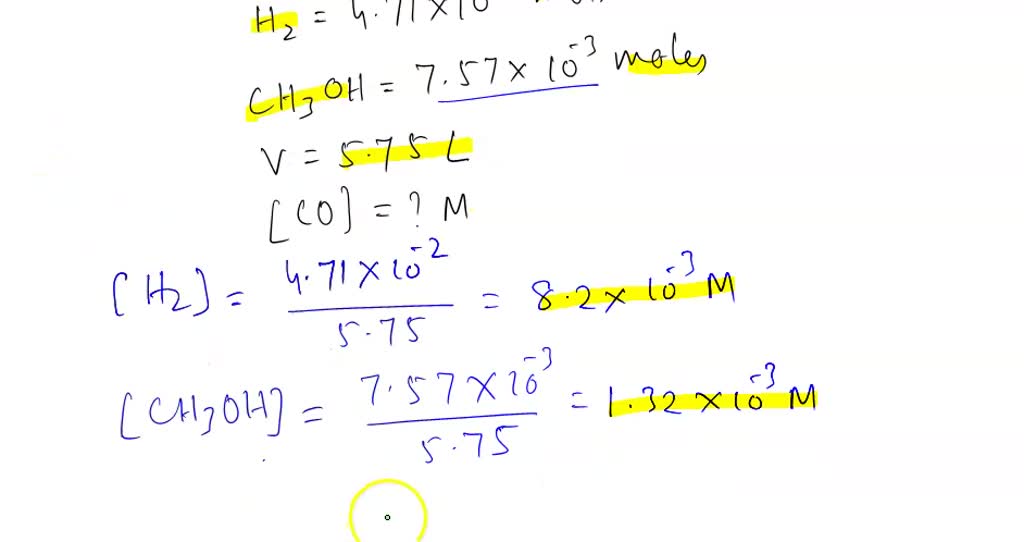 H₂ = 4.71×10
CH₃OH = 7.57 × 10⁻³ moles
V = 5.75 L
[CO] = ? M
[H₂] = 4.71 × 10⁻² / 5.75 = 8.2 × 10⁻³ M
[CH₃OH] = 7.57 × 10⁻³ / 5.75 = 1.32 × 10⁻³ M